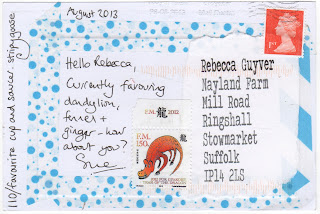 August 2013
110/favourite cup and saucer, stripygoose
Hello Rebecca,
Currently favouring
dandylion,
fennel +
ginger - how
about you?
Sue
1ST
Rebecca Guyver
Nayland Farm
Mill Road
Ringshall
Stowmarket
Suffolk
IP14 2LS
F.M. 龍 2012
F.M.
150
龍